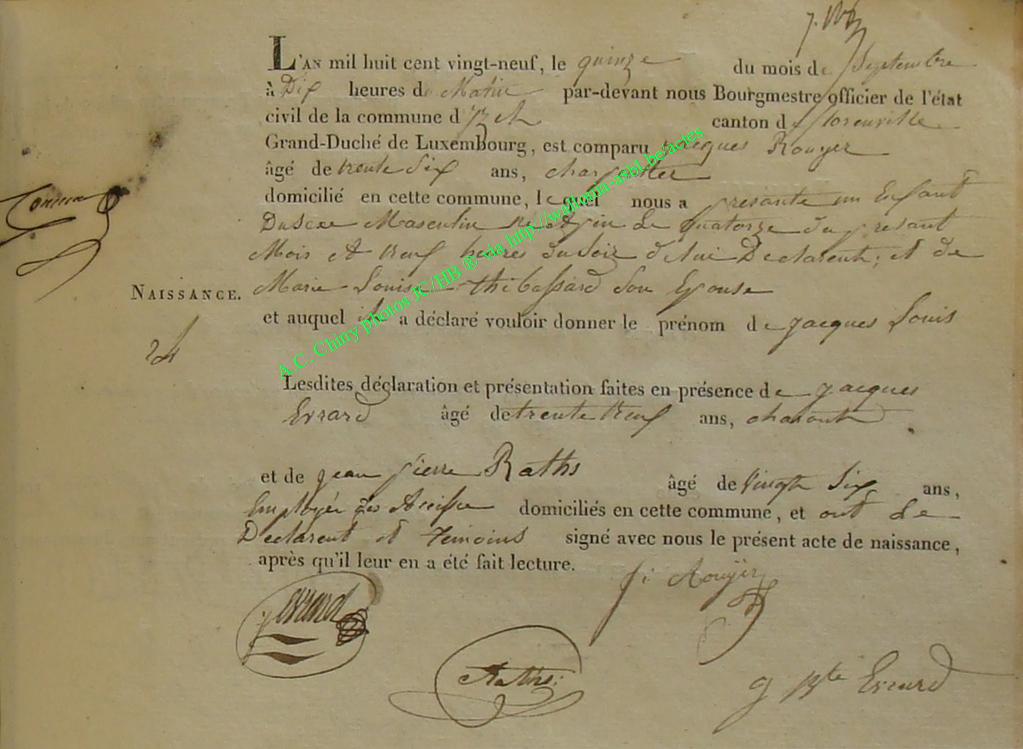 L'AN mil huit cent vingt-neuf, le quinze du mois de Septembre
à Dix heures du Matin par-devant nous Bourgmestre officier de l'état
civil de la commune d'Izel canton de florenville
Grand-Duché de Luxembourg, est comparu Jacques Rouyer
âgé de trente Six ans, charpentier
domicilié en cette commune, lequel nous a presanté un Enfant
Du Sexe Masculin né le quatorze du presant
Mois et Neuf heures du Soir de lui Declarent, et de
Marie Louise thibessard Son Epouse
NAISSANCE.
et auquel il a déclaré vouloir donner le prénom de Jacques Louis
Lesdites déclaration et présentation faites en présence de Jacques
Evrard âgé de trente Neuf ans,
et de Jean pierre Raths âgé de Vingte Six ans,
Employée des Accisse domiciliés en cette commune, et ont le
Declarent et Temoins signé avec nous le présent acte de naissance,
après qu'il leur en a été fait lecture.
J: Rouyer
J evrard
Raths
J Bte Evrard
A.C. Chiny photos JC/HB ® via http://wallonia-asbl.be/actes